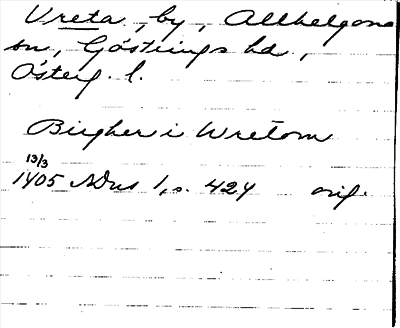 Vreta, by, Allhelgona
sn, Göstrings hd,
Österg. l.
Birgher i Wretom
13/3
1405 SDns 1, s. 424 orig.